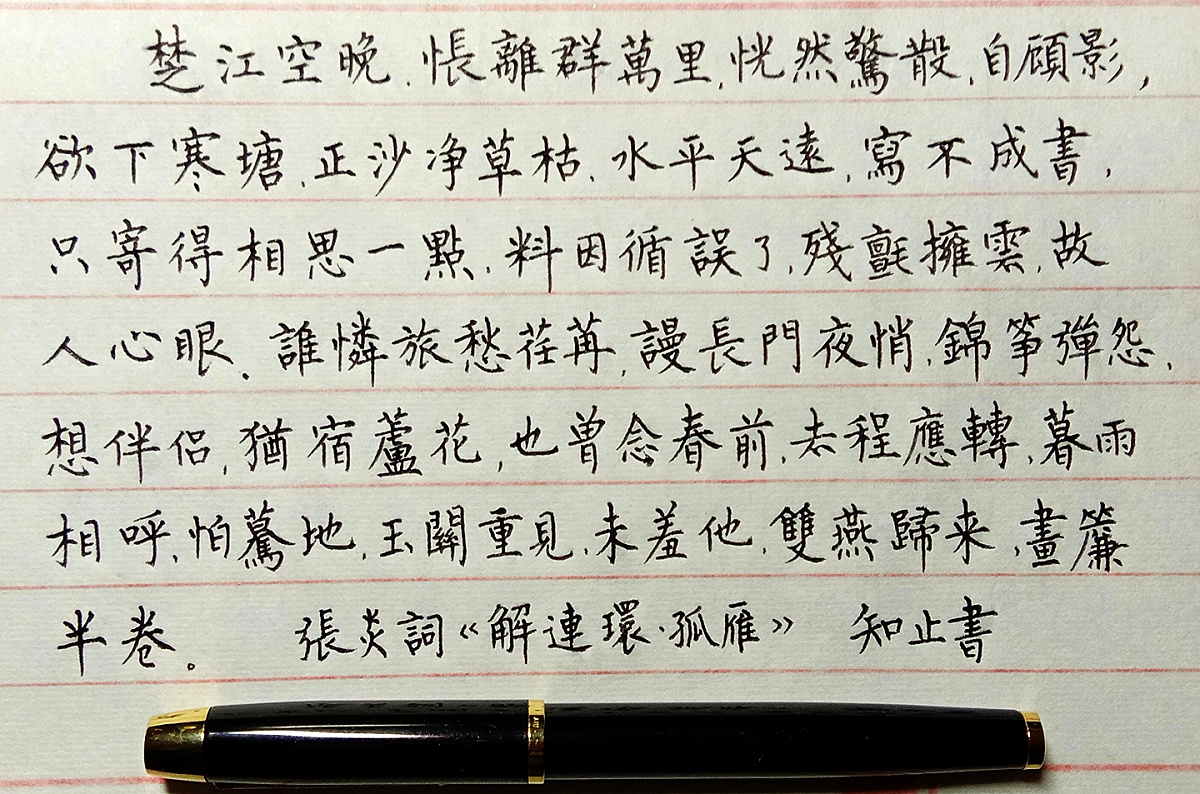 楚江空晚.悵離群萬里,恍然驚散.自顧影,
欲下寒塘.正沙净草枯.水平天遠.寫不成書.
只寄得相思一點.料因循誤了.殘氈擁雲.故
人心眼.誰憐旅愁荏苒.謾長門夜悄.錦箏彈怨.
想伴侣.猶宿蘆花.也曾念春前.去程應轉.暮雨
相呼.怕驀地.玉關重見.未羞他.雙燕歸来.畫簾
半卷。 張炎詞《解連環·孤雁》 知止書